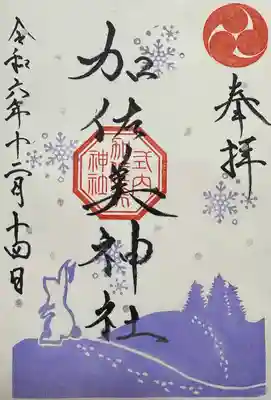 奉拝
加佐美神社
式内
神社
令和六年十二月十四日